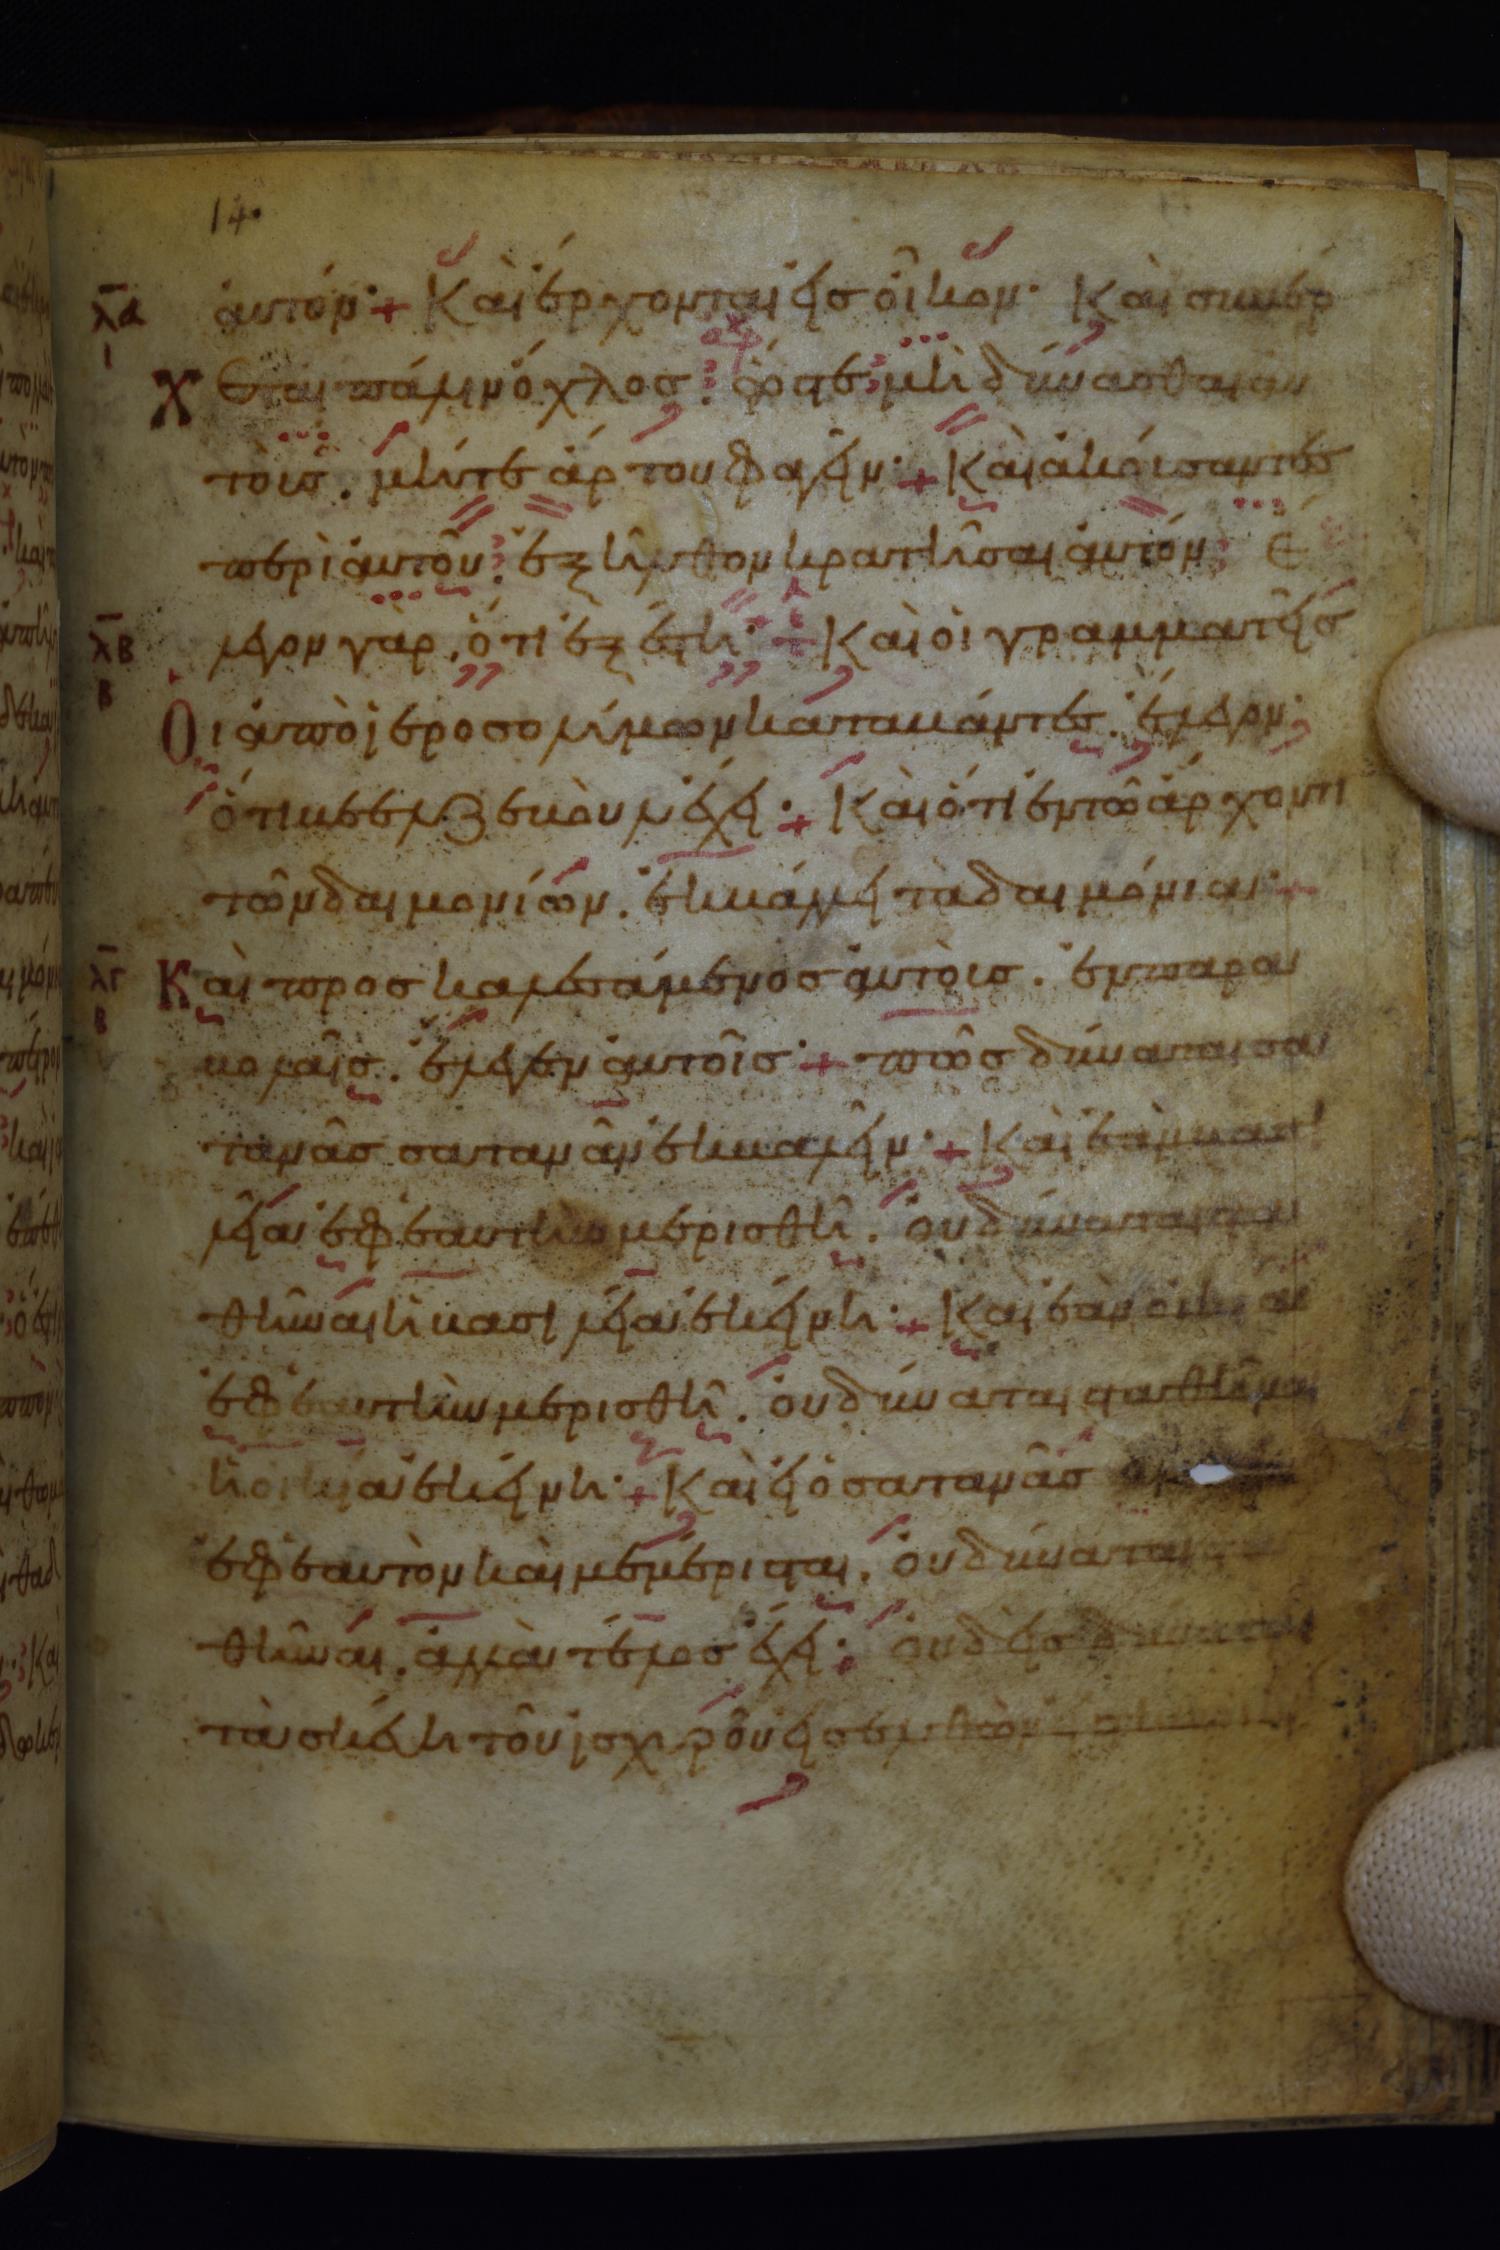 14.
λα αυτόν· + Και έρχονται εισ οίκον· Και συνερ
ι
χεται πάλιν ό χλοσ· ώστε μη δύνασθαι αυ
τοισ. μήτε άρτον φαγείν· + Και ακούσαντεσ
περι αυτου· εξήλθον κρατήσαι αυτόν· έ
λβ λεγον γαρ, ότι εξέστη· + Και οι γραμματείσ
β
Οι από ιεροσολύμων καταβάντεσ. έλεγον·
ότι βεελζεβουλ έχει· + Και ότι εν τω άρχοντι
των δαιμονίων. εκβάλλει τα δαιμόνια· +
λγ Και προσκαλεσάμενοσ αυτοισ. εν παρα
β
βολαισ. έλεγεν αυτοισ· + πωσ δύναται σα
τανασ σαταναν εκβαλειν· + Και εαν βασι
λεία εφ εαυτην μερισθη. ου δύναται στα
θηναι η βασιλεία εκείνη· + Και εαν οικία
εφ εαυτην μερισθη. ου δύναται σταθηναι
η οικία εκείνη· + Και ει ο σατανασ
εφ εαυτον και μεμέρισται. ου δύναται στα
θηναι. αλλα τέλοσ έχει· ουδεισ δύναται
τα σκεύη του ισχυρου εισελθων